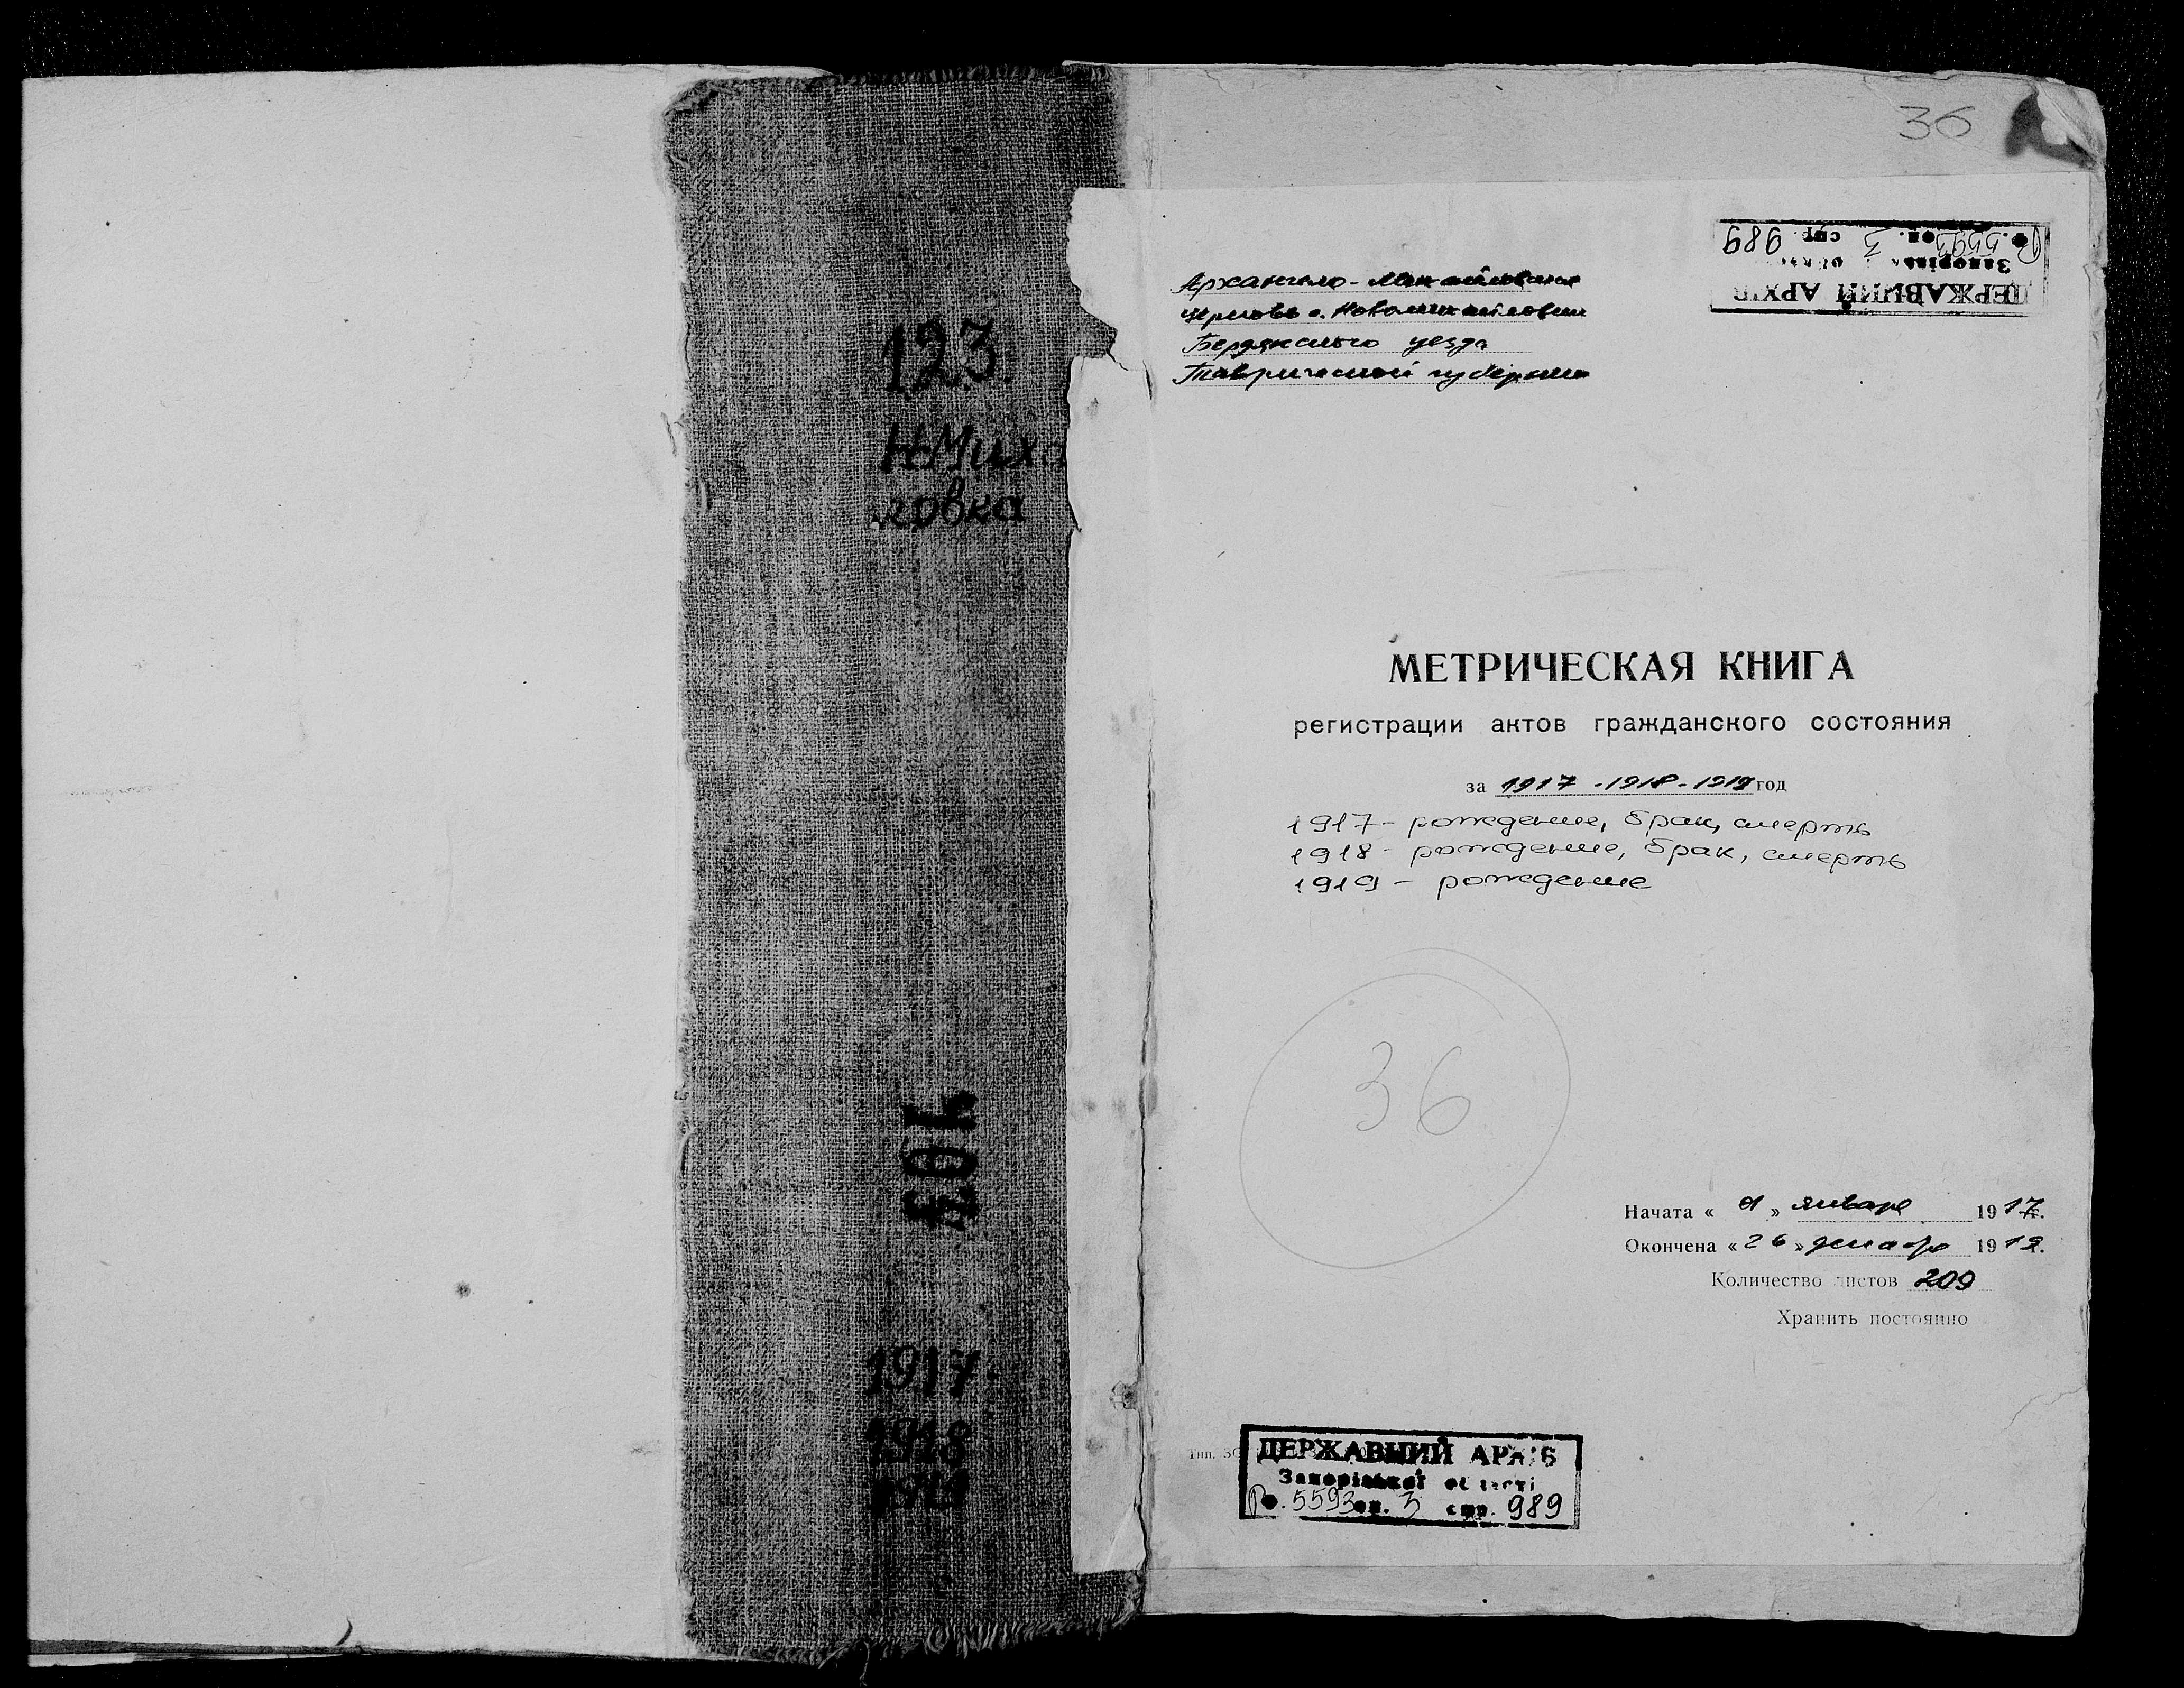 123.
Н-Миха
ловка
107
1917
1918
1919
36
ДЕРЖАВНИЙ АРХІВ
Ф. Р5593 оп. 3 спр. 989
Архангело-Михайловская
церковь с. Новомихайловки
Бердянского уезда
Таврической губернии
МЕТРИЧЕСКАЯ КНИГА
регистрации актов гражданского состояния
за 1917-1918-1919 год
1917- рождение, брак, смерть
1918- рождение, брак, смерть
1919 - рождение
36
Начата « 1 » января 1917г.
Окончена «26» декабр 1919г.
Количество листов 209
Хранить постоянно
Тип.
ДЕРЖАВНИЙ АРХІВ
Запорізької області
Ф. Р5593 оп. 3 спр. 989